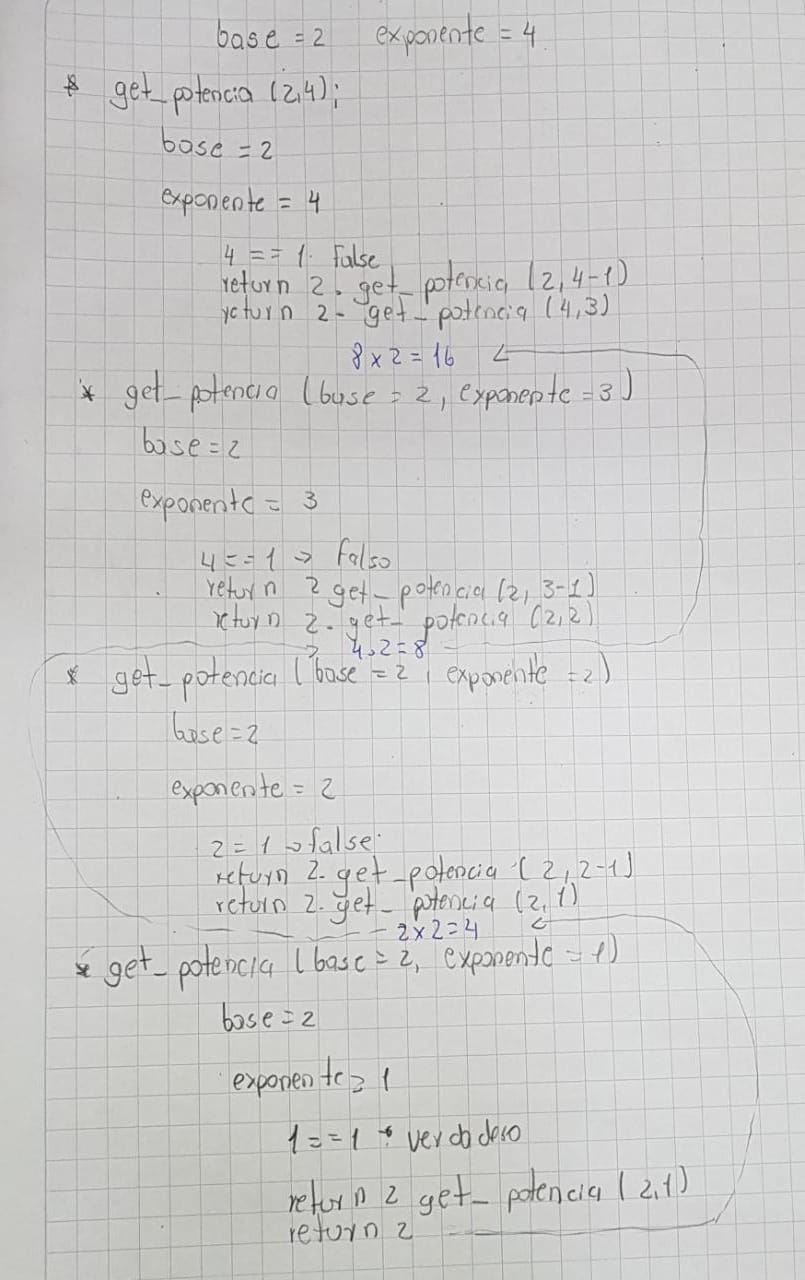 base = 2 exponente = 4
* get_potencia (2,4);
base = 2
exponente = 4
4 == 1. False
return 2. get_potencia (2, 4-1)
return 2- get_potencia (4,3)
8 x 2 = 16
* get_potencia (base = 2, exponente = 3)
base = 2
exponente = 3
4 == 1 → Falso
return 2 get_potencia (2, 3-1)
return 2. get_potencia (2,2)
4.2=8
* get_potencia (base = 2, exponente = 2)
base = 2
exponente = 2
2 = 1 → false
return 2. get_potencia (2, 2-1)
return 2. get_potencia (2,1)
2x2=4
* get_potencia (base = 2, exponente = 1)
base = 2
exponente = 1
1 == 1 : verdadero
return 2 get_potencia (2,1)
return 2